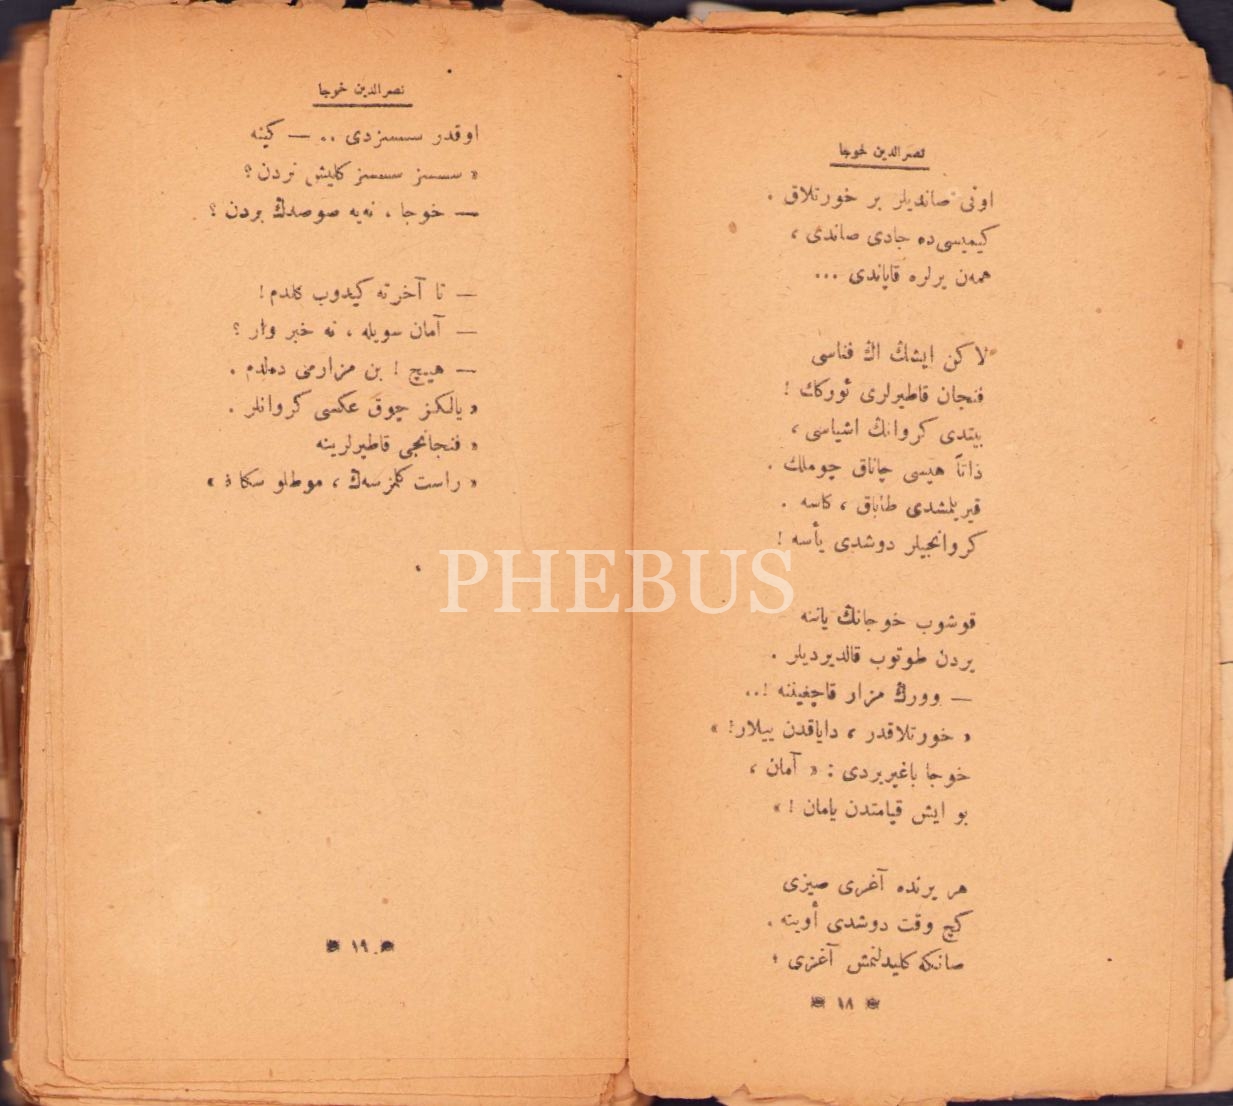 نصرالدین خوجا
اونی صاندیلر بر خورتلاق .
کیمیسی ده جادی صاندی ،
همه‌ن یرلره قاپاندی ...
لاکن ایشڭ اڭ فناسی
فنجان قاطیرلری ئورکك !
بیتدی کروانڭ اشیاسی ،
ذاتاً هپسی چاناق چوملك .
قیریلمشدی طاباق ، کاسه .
کروانجیلر دوشدی یأسه !
قوشوب خوجانڭ یاننه
یردن طوتوب قالدیردیلر .
— وورڭ مزار قاچغیننه !..
« خورتلاقدر ، دایاقدن ییلار! »
خوجا باغیریردی : « آمان ،
بو ایش قیامتدن یامان ! »
هر یرنده آغری صیزی
کچ وقت دوشدی أوینه .
صانکه کلیدلنمش آغزی ؛
١٨
نصرالدین خوجا
اوقدر سسسزدی .. — کینه
« سسسز سسسز کلیش نردن ؟
— خوجا ، نه‌یه صوصدڭ بردن ؟
— تا آخرته کیدوب کلدم !
— آمان سویله ، نه خبر وار ؟
— هیچ ! بن مزارمی ده‌لدم .
« یالکز چوق عکسی کروانلر .
« فنجانجی قاطیرلرینه
« راست کلمزسه‌ڭ ، موطلو سکا ! »
١٩
PHEBUS